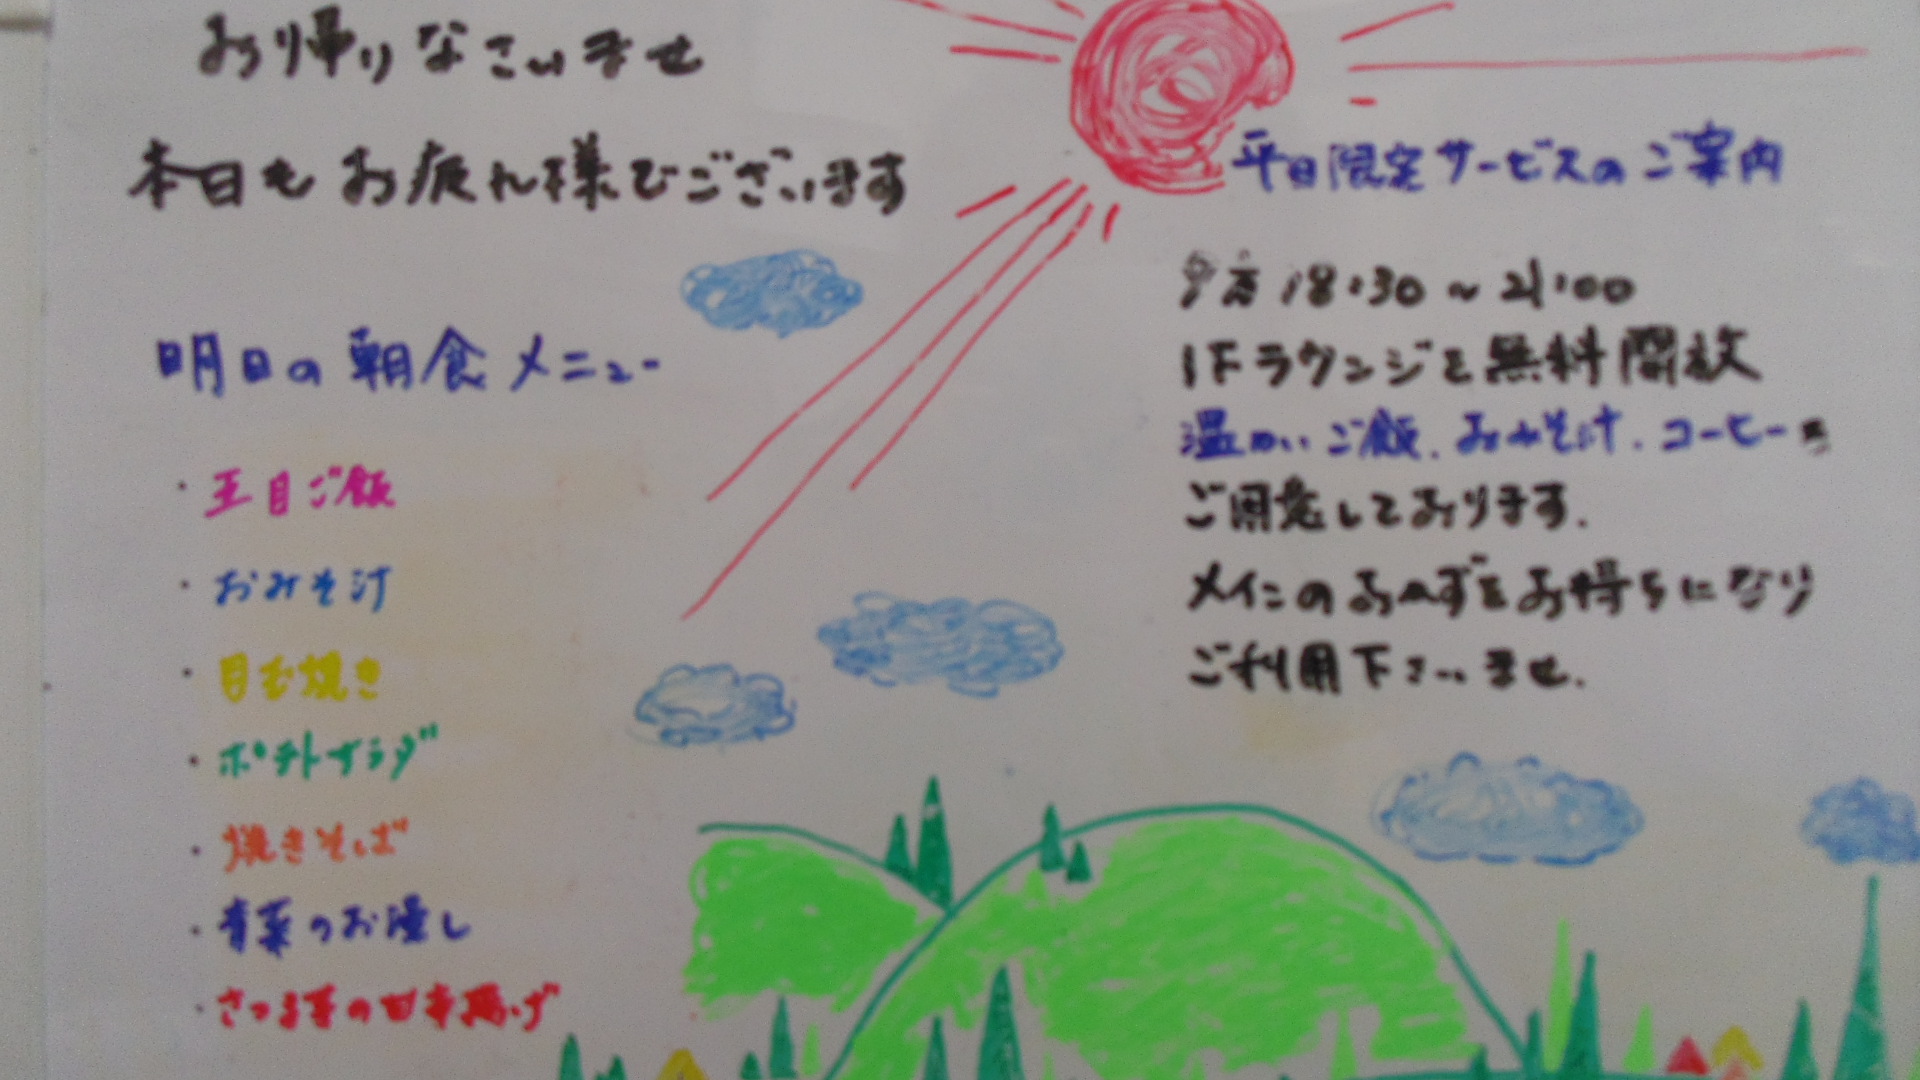 お帰りなさいませ
本日もお疲れ様でございます
明日の朝食メニュー
・五目ご飯
・おみそ汁
・目玉焼き
・ポテトサラダ
・焼きそば
・青菜のお浸し
・さつま芋の甘辛揚げ
平日限定サービスのご案内
夕方 18:30~21:00
1Fラウンジを無料開放
温かいご飯.おみそ汁.コーヒーを
ご用意しております.
メインのおかずをお持ちになり
ご利用下さいませ.